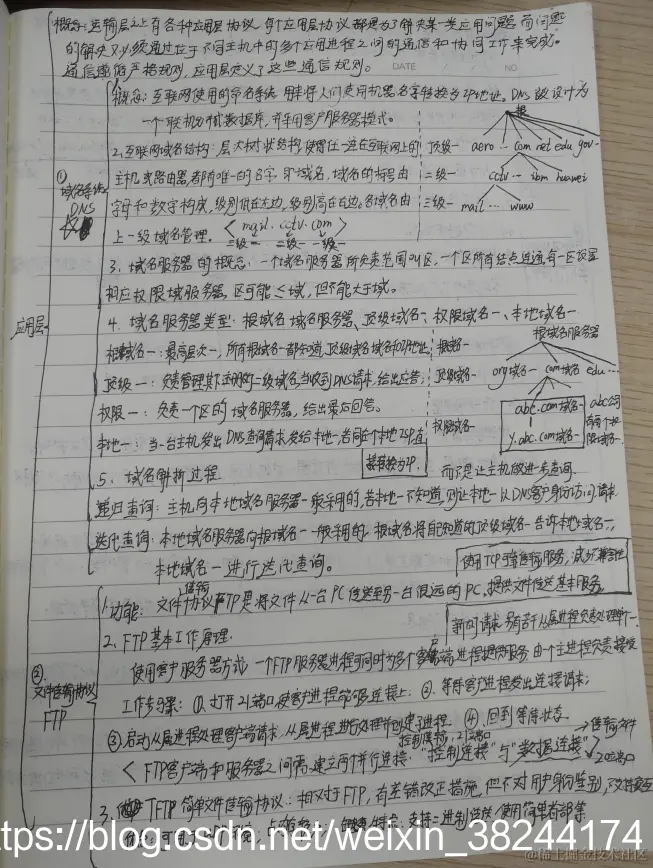 概念:运输层之上有各种应用层协议,每个应用层协议都是为了解决某一类应用问题,而问题
的解决又必须通过位于不同主机中的多个应用进程之间的通信和协同工作来完成。
通信遵循严格规则,应用层定义了这些通信规则。
DATE
NO
应用层
① 域名系统 DNS
1、概念:互联网使用的命名系统,用来将人们使用机器名字转换为IP地址。DNS被设计为
一个联机分布式数据库,并采用客户服务器模式。
2、互联网域名结构:层次树状结构,使得任一连在互联网上的
主机或路由器都有唯一的名字,即域名,域名的标号由
字母和数字构成,级别低在左边,级别高在右边。各域名由
上一级域名管理。< mail.cctv.com >
三级一 二级一 一级一
根
顶级一 aero … com net edu gov…
二级一 cctv … ibm huawei
三级一 mail … www
3、域名服务器的概念:一个域名服务器所负责范围叫区,一个区所有结点连通,每一区设置
相应权限域服务器,区可能≤域,但不能大于域。
4、域名服务器类型:根域名域名服务器、顶级域名一、权限域名一、本地域名一
根域名一:最高层次一,所有根域名一都知道顶级域名域名和IP地址
顶级一:负责管理其下注册的二级域名,当收到DNS请求,给出应答;
权限一:负责一个区的域名服务器,给出最后回答。
本地一:当一台主机发出DNS查询请求,发给本地一,若同在一个本地ISP直
接转换为IP.
而不是让主机做进一步查询
根域名服务器
根域名一
顶级域名一 org域名一 com域名 edu …
权限域名一 abc.com域名一
y.abc.com域名一
abc公司
有两个权
限域名一
5、域名解析过程.
递归查询:主机向本地域名服务器一般采用的,若本地一不知道,则让本地一以DNS客户身份访问请求
迭代查询:本地域名服务器向根域名一一般采用的,根域名将自己知道的顶级域名一告诉本地域名一,
本地域名一进行迭代查询。
② 文件传输协议 FTP
使用TCP可靠传输服务,减少兼容性
1、功能:文件传输协议FTP是将文件从一台PC传送至另一台很远的PC,提供文件传送基本服务
2、FTP基本工作原理.
新的请求,另有若干从属进程负责处理单个一
使用客户服务器方式,一个FTP服务器进程可同时为多个客户端进程提供服务.由一个主进程负责接受
工作步骤:①、打开21端口,使客户进程能够连接上;②、等待客户进程发出连接请求;
③启动从属进程处理客户端请求,从属进程进行处理并创建子进程. ④、回到等待状态.
< FTP客户端和服务器之间需建立两个并行连接:“控制连接”与“数据连接”
21端口
传输文件
20端口
3、TFTP简单文件传输协议:相对于FTP,有差错改正措施,但不对用户身份鉴别,不支持交互
支持二进制
使用简单首部等
https://blog.csdn.net/weixin_38244174
@稀土掘金技术社区